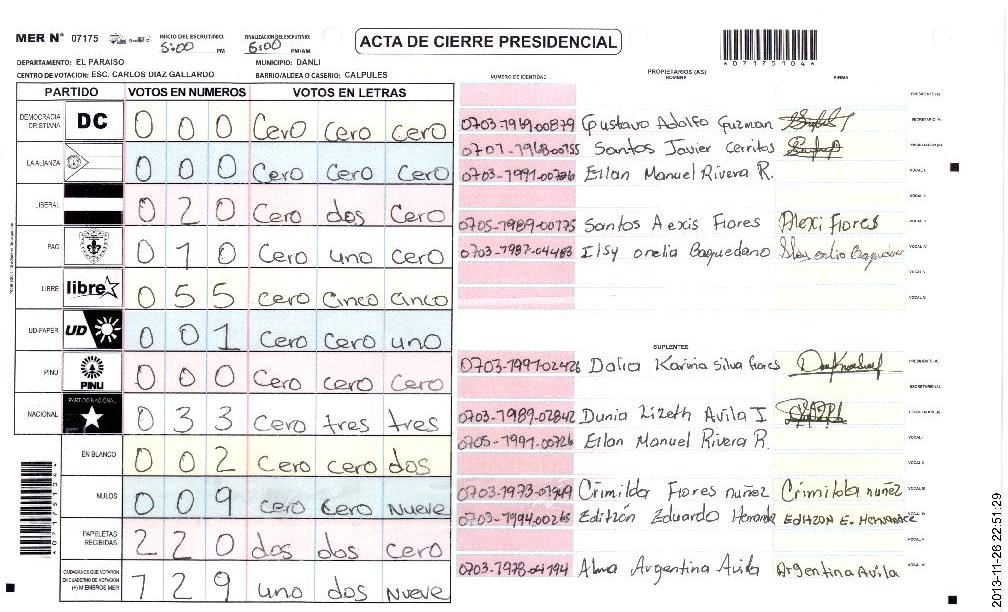 MER N° 07175
INICIO DEL ESCRUTINIO: 5:00 PM
FINALIZACION DEL ESCRUTINIO: 6:00 PM/AM
ACTA DE CIERRE PRESIDENCIAL
4071751044
DEPARTAMENTO: EL PARAISO MUNICIPIO: DANLI
CENTRO DE VOTACION: ESC. CARLOS DIAZ GALLARDO BARRIO/ALDEA O CASERIO: CALPULES
PARTIDO VOTOS EN NUMEROS VOTOS EN LETRAS
DEMOCRACIA CRISTIANA DC 0 0 0 Cero cero cero
LA ALIANZA 0 0 0 Cero Cero Cero
LIBERAL 0 2 0 Cero dos Cero
PAC 0 1 0 Cero uno cero
LIBRE libre 0 5 5 cero Cinco Cinco
UD-FAPER UD 0 0 1 Cero Cero uno
PINU PINU 0 0 0 Cero cero cero
NACIONAL PARTIDO NACIONAL 0 3 3 Cero tres tres
EN BLANCO 0 0 2 Cero cero dos
NULOS 0 0 9 cero Cero Nueve
PAPELETAS RECIBIDAS 2 2 0 dos dos cero
CIUDADANOS QUE VOTARON EN CUADERNO DE VOTACION (+) MIEMBROS MER 1 2 9 uno dos Nueve
NUMERO DE IDENTIDAD PROPIETARIOS (AS) NOMBRE FIRMA
PRESIDENTE (A)
0703-1969-00879 Gustavo Adolfo Guzman SECRETARIO (A)
0707-1968-00155 Santos Javier Cerritos ESCRUTADOR (A)
0703-1991-00726 Ellan Manuel Rivera R. VOCAL I
VOCAL II
0705-1989-00175 Santos Alexis Flores Alexi Flores VOCAL III
0703-1987-04483 Ilsy onelia Baquedano VOCAL IV
VOCAL V
VOCAL VI
SUPLENTES
0703-1991-02426 Dalia Karina Silva flores PRESIDENTE (A)
SECRETARIO (A)
0703-1989-02842 Dunia Lizeth Avila I ESCRUTADOR (A)
0705-1991-00726 Ellan Manuel Rivera R. VOCAL I
VOCAL II
0703-1973-01949 Crimilda Flores nuñez Crimilda nuñez VOCAL III
0703-1994-00265 Editzón Eduardo EDITZON E. VOCAL IV
VOCAL V
0703-1978-04194 Alma Argentina Avila Argentina Avila VOCAL VI
4071751044
2013-11-26 22:51:29